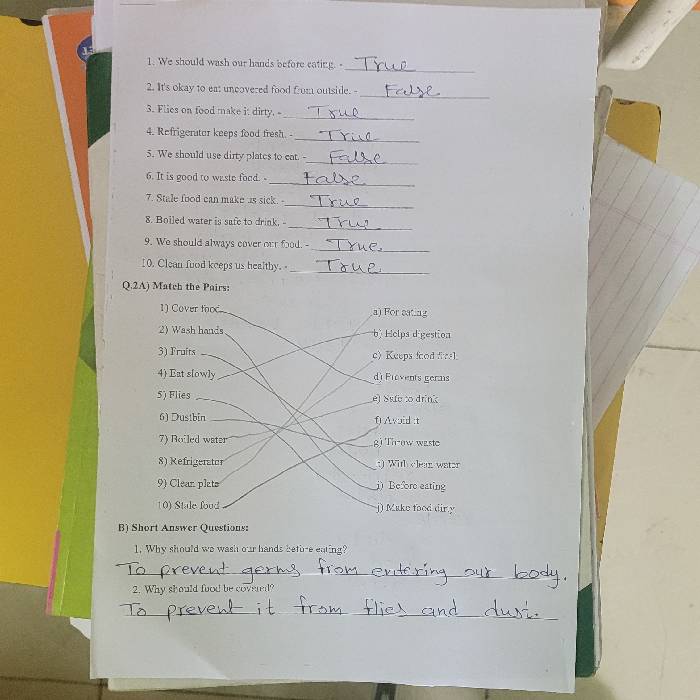 1. We should wash our hands before eating. - True
2. It's okay to eat uncovered food from outside. - False
3. Flies on food make it dirty. - True
4. Refrigerator keeps food fresh. - True
5. We should use dirty plates to eat. - False
6. It is good to waste food. - False
7. Stale food can make us sick. - True
8. Boiled water is safe to drink. - True
9. We should always cover our food. - True
10. Clean food keeps us healthy. - True
Q.2A) Match the Pairs:
1) Cover food a) For eating
2) Wash hands b) Helps digestion
3) Fruits c) Keeps food fresh
4) Eat slowly d) Prevents germs
5) Flies e) Safe to drink
6) Dustbin f) Avoid it
7) Boiled water g) Throw waste
8) Refrigerator h) With clean water
9) Clean plate i) Before eating
10) Stale food j) Make food dirty
B) Short Answer Questions:
1. Why should we wash our hands before eating?
To prevent germs from entering our body.
2. Why should food be covered?
To prevent it from flies and dust.